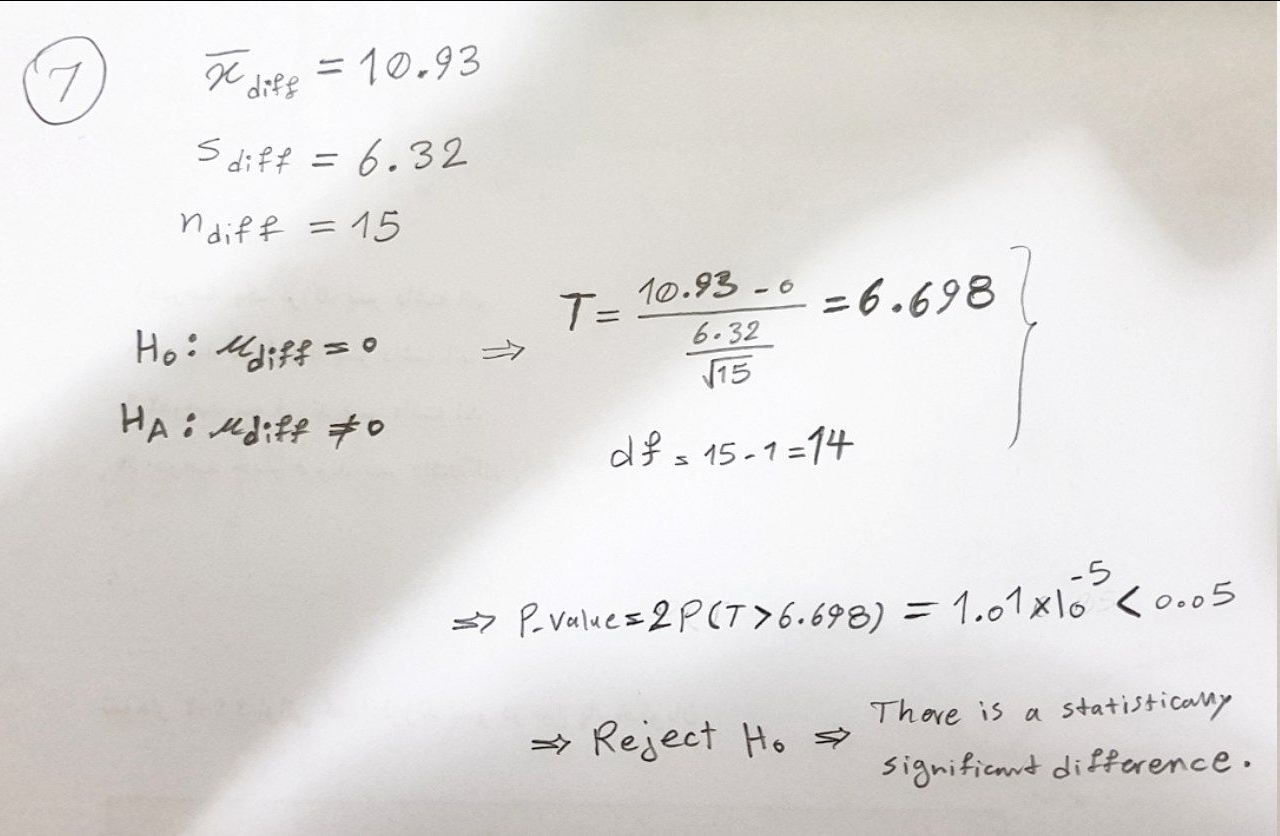 7
x̄ diff = 10.93
s diff = 6.32
n diff = 15
H₀: μdiff = 0 ⇒ T = (10.93 - 0) / (6.32 / √15) = 6.698 }
H_A: μdiff ≠ 0
df = 15 - 1 = 14
⇒ P-value = 2P(T > 6.698) = 1.01 × 10⁻⁵ < 0.05
⇒ Reject H₀ ⇒ There is a statistically
significant difference.